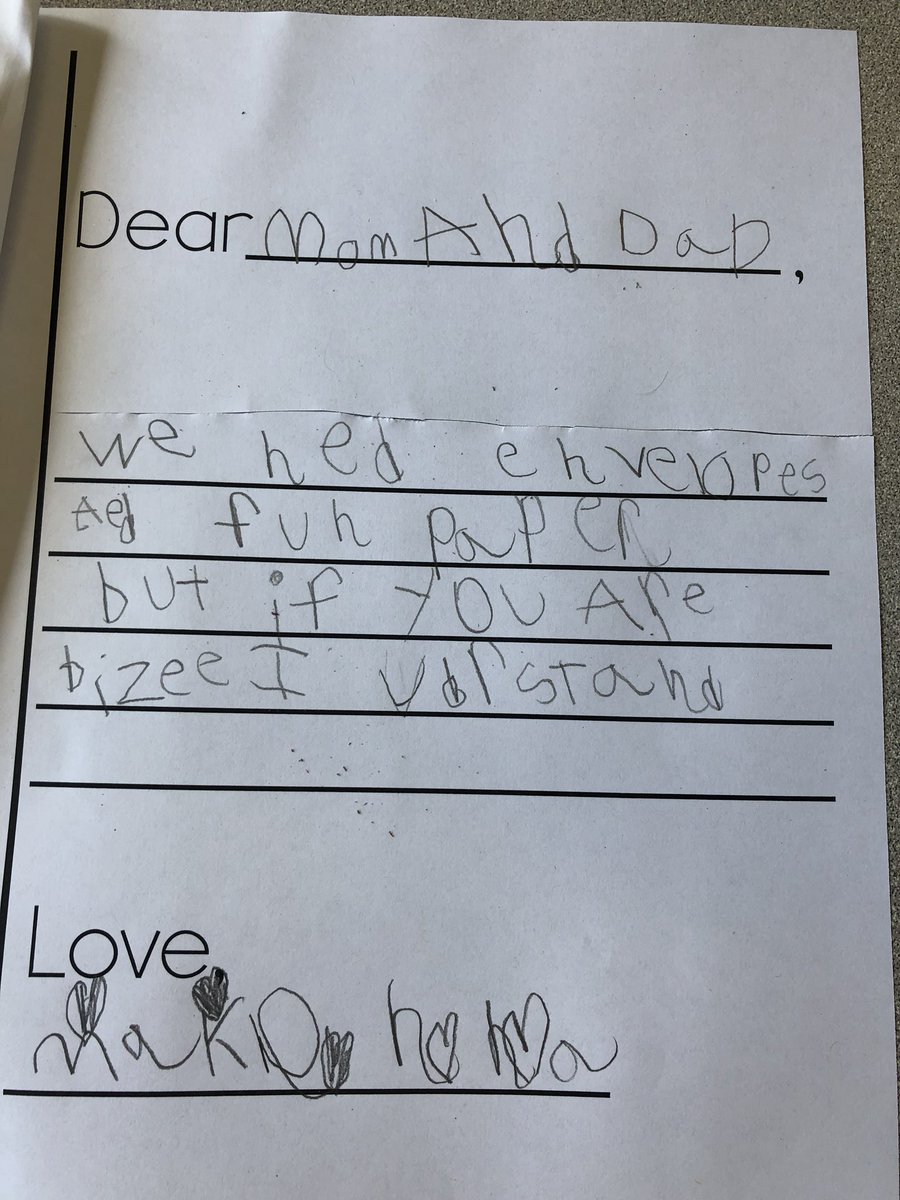 Dear Mom And DaD,
we ned envelopes
fun paper
but if you Are
bizee I udrstand
Love,